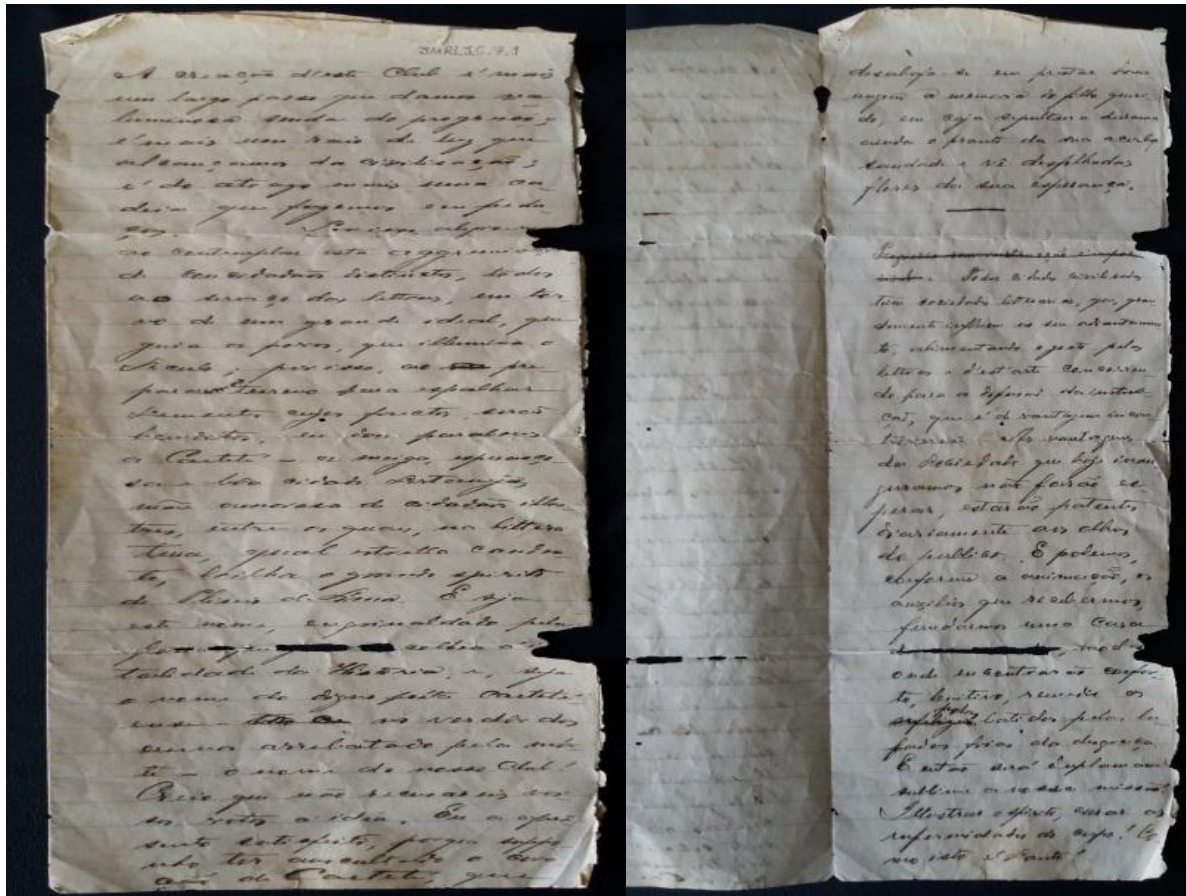 JMRLJ.C.7.1
A creação d'este Club é mais
um largo passo que damos na
luminosa senda do progresso;
é mais um raio de luz que
alcançamos da civilisação;
é do atraso mais uma ca-
deia que fazemos em peda-
ços.
ao contemplar esta aggremiação
de concidadãos distinctos, todos
ao serviço das lettras, em tor-
no de um grande ideal, que
guia os povos, que illumina o
Seculo; por isso, ao pre-
parar-se o terreno para espalhar
sementes cujos fructos serão
bemditos, eu dou parabens
a Caeteté — a meiga, esperanço-
sa e bôa cidade Sertaneja,
mãe amorosa de cidadãos illus-
tres, entre os quaes, na littera-
tura, qual estrella canden-
te, brilha o grande espirito
de Plinio de Lima. E seja
este nome, engrinaldado pela
tabilidade da Historia, e, seja
o nome do digno poéta Caeteté-
ense — no verdôr dos
annos arrebatado pela mór-
te — o nome do nosso Club!
Creio que não recusareis vos-
sos votos a idéa. Eu a apre-
sento satisfeito, porque suppo-
nho ter auscultado o cora-
ção de Caeteté, que
desabafa-se em prestar home-
nagem à memoria do filho queri-
do, em cuja sepultura derrama
ainda o pranto da sua acerba
saudade e vê desfolhadas
flores da sua esperança.
Todas cidades civilisadas
tem sociedades litterarias, que, gran-
demente influem no seu adiantamen-
to, alimentando o gosto pelas
lettras e d'est'arte concorren-
do para a difusão da instruc-
ção, que é de vantagem incon-
As vantagens
da Sociedade que hoje inau-
guramos não farão es-
perar, estarão patentes
diariamente aos olhos
do publico. E podemos,
conforme a animação, os
auxilios que recebermos,
fundarmos uma Casa
onde encontrarão confor-
to, lenitivo, remedio os
batidos pelas lu-
fadas frias da desgraça.
E então será duplamente
sublime a nossa missão!
Illustrar o espirito, curar as
enfermidades do corpo! Co-
mo isto é Santo!